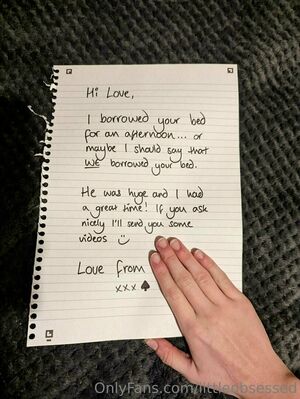 Hi Love,
I borrowed your bed
for an afternoon... or
maybe I should say that
WE borrowed your bed.
He was huge and I had
a great time! If you ask
nicely I'll send you some
videos :)
Love from
xxx ♠
OnlyFans.com/littleobsessed